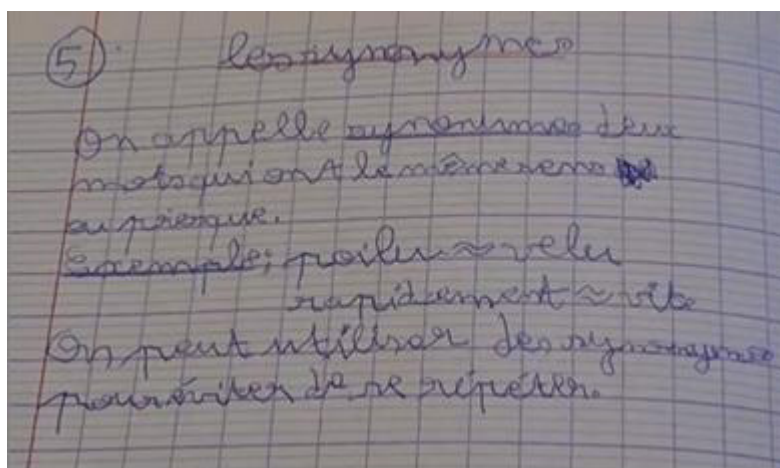 5 les synonymes
On appelle synonimes deux
mots qui ont le même sens
ou presque.
Exemple: poilu ≈ velu
rapidement ≈ vite
On peut utiliser des synonymes
pour éviter de se répéter.